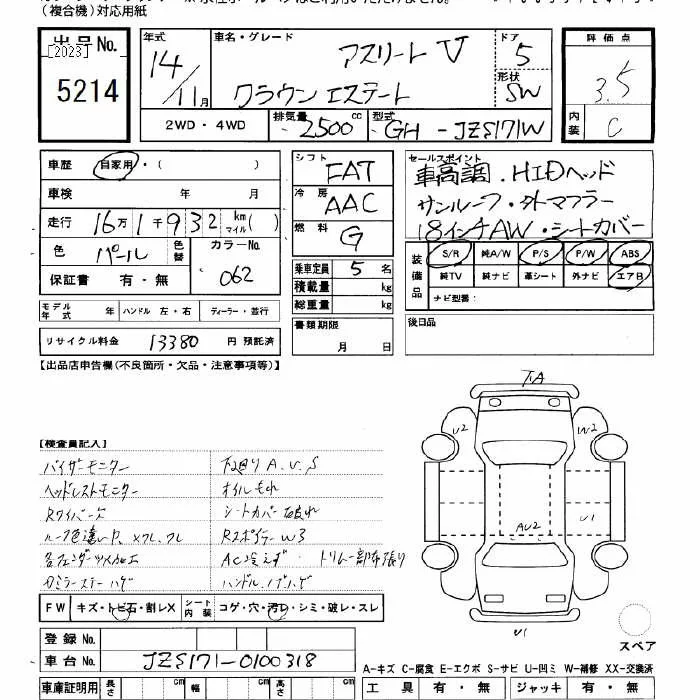 (複合機)対応用紙
出品No.
[2023]
5214
年式
14/11月
車名・グレード
アスリートV
クラウンエステート
ドア
5
形状
SW
評価点
3.5
内装
C
2WD・4WD
排気量
2500cc
型式
GH-JZS171W
車歴 自家用・( )
車検 年 月
走行 16万1千932km マイル( )
色 パール 色替
カラーNo. 062
保証書 有・無
シフト FAT
冷房 AAC
燃料 G
乗車定員 5名
積載量 kg
総重量 kg
セールスポイント
車高調.HIDヘッド
サンルーフ・外マフラー
18インチAW・シートカバー
装備品
S/R 純A/W P/S P/W ABS
純TV 純ナビ 革シート 外ナビ エアB
ナビ型番:
モデル年式 年 ハンドル 左・右 ディーラー・並行
リサイクル料金 13380 円 預託済
書類期限
月 日
後日品
【出品店申告欄(不良箇所・欠品・注意事項等)】
【検査員記入】
バイザーモニター
ヘッドレストモニター
Rワイパーズ
各フェンダーツメ加工
下廻りA.U.S
オイルもれ
シートカバー破れ
RスポイラーW3
AC冷えず・トリム一部布張り
A
U2
W2
AU2
U1
U1
FW キズ・トビ石・割レX
シート内装 コゲ・穴・汚レ・シミ・破レ・スレ
スペア
登録No.
車台No. JZS171-0100318
A-キズ C-腐食 E-エクボ S-サビ U-凹ミ W-補修 XX-交換済
車庫証明用 長さ cm 幅 cm 高さ cm
工具 有・無 ジャッキ 有・無